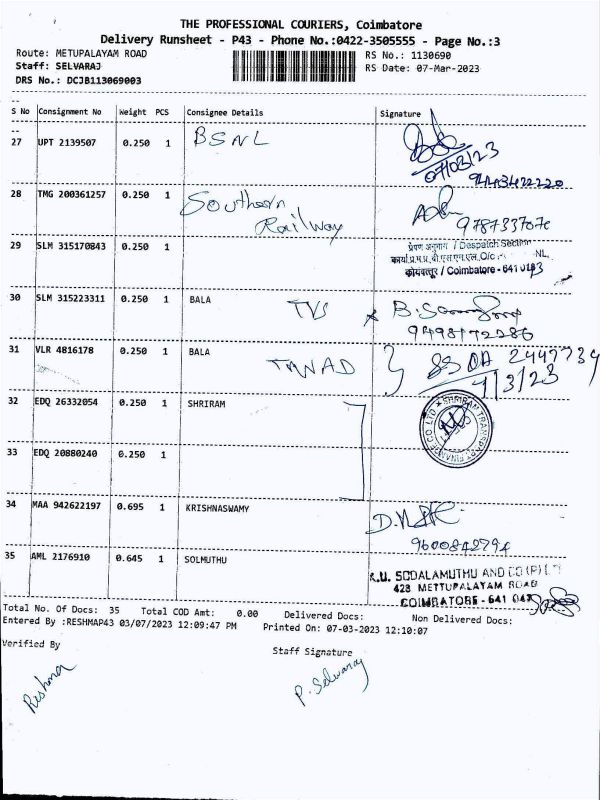 THE PROFESSIONAL COURIERS, Coimbatore
Delivery Runsheet - P43 - Phone No.:0422-3505555 - Page No.:3
Route: METUPALAYAM ROAD RS No.: 1130690
Staff: SELVARAJ RS Date: 07-Mar-2023
DRS No.: DCJB113069003
S No Consignment No Weight PCS Consignee Details Signature
27 UPT 2139507 0.250 1 BSNL
07/03/23
9443422220
28 TMG 200361257 0.250 1 Southern
Railway
29 SLM 315170843 0.250 1 प्रेषण अनुभाग / Despatch Section
कोयंबत्तूर / Coimbatore - 641 043
30 SLM 315223311 0.250 1 BALA TVS
9498172286
31 VLR 4816178 0.250 1 BALA TNWAD 2447734
32 EDQ 26332054 0.250 1 SHRIRAM
33 EDQ 20880240 0.250 1
34 MAA 942622197 0.695 1 KRISHNASWAMY
9600842794
35 AML 2176910 0.645 1 SOLMUTHU
K.U. SODALAMUTHU AND CO (P) LTD
428 METTUPALAYAM ROAD
COIMBATORE - 641 043
Total No. Of Docs: 35 Total COD Amt: 0.00 Delivered Docs: Non Delivered Docs:
Entered By :RESHMAP43 03/07/2023 12:09:47 PM Printed On: 07-03-2023 12:10:07
Verified By Staff Signature
Reshma P. Selvaraj